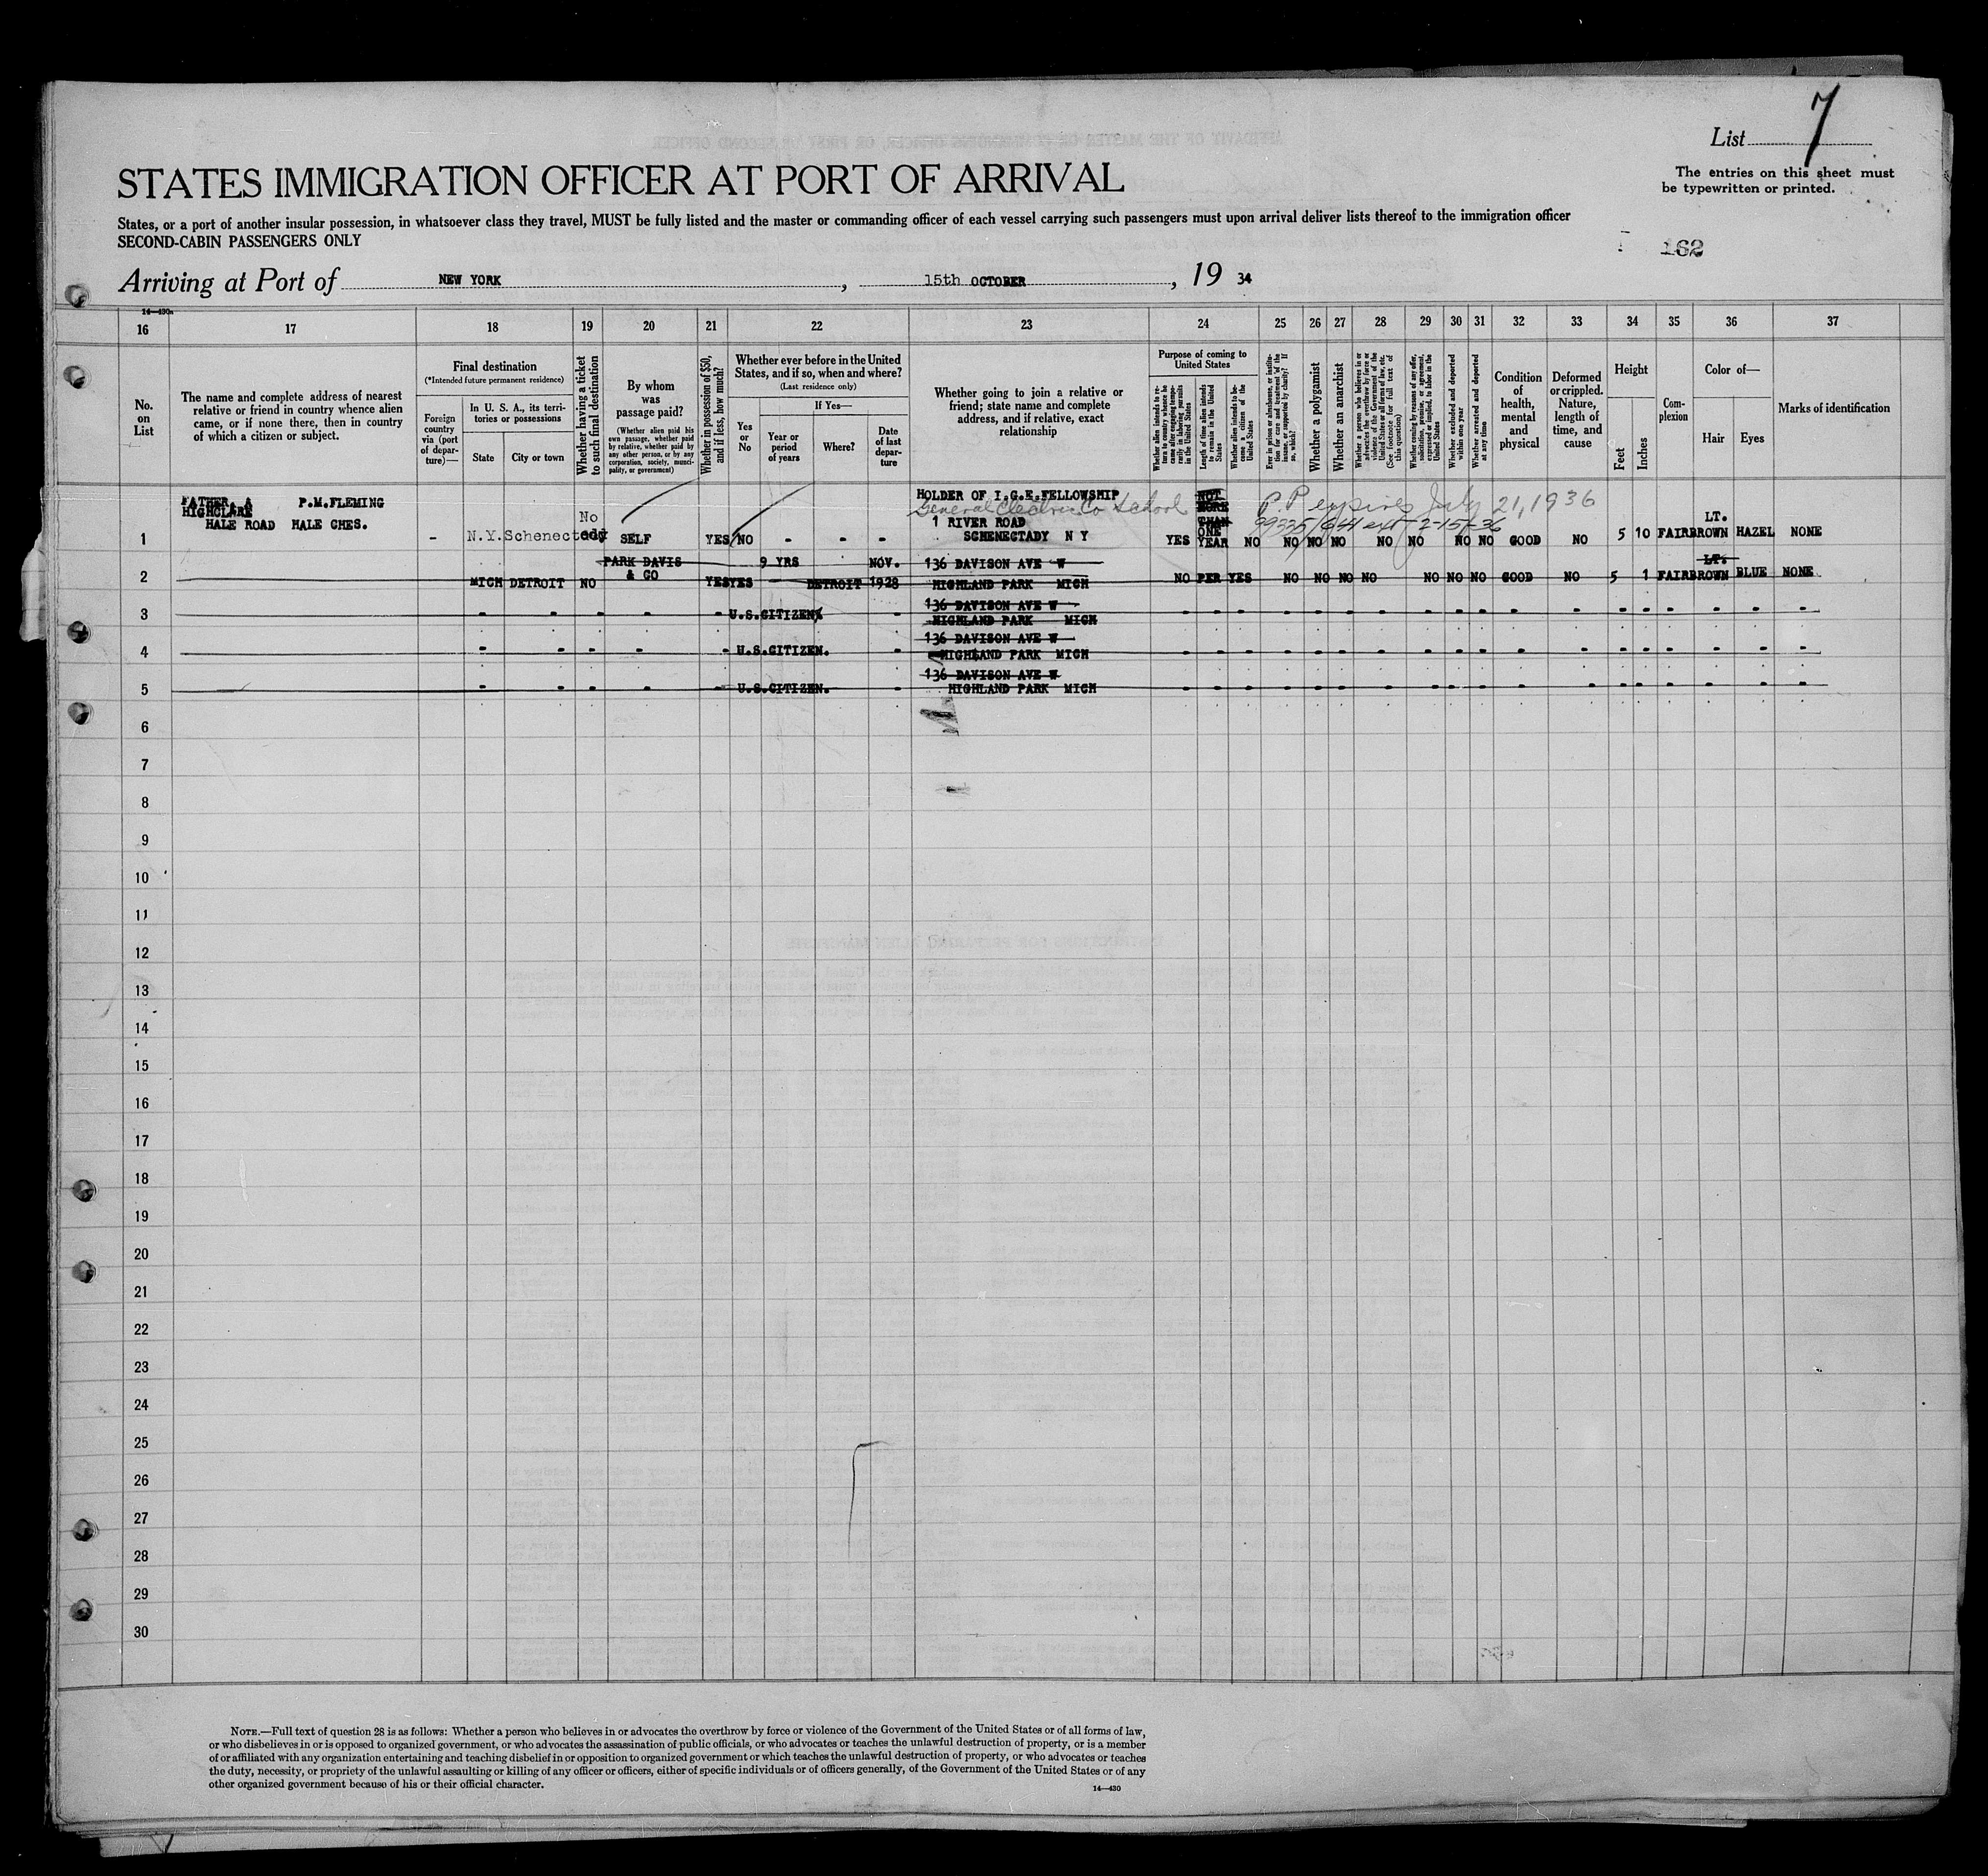 List 7
The entries on this sheet must
be typewritten or printed.
STATES IMMIGRATION OFFICER AT PORT OF ARRIVAL
States, or a port of another insular possession, in whatsoever class they travel, MUST be fully listed and the master or commanding officer of each vessel carrying such passengers must upon arrival deliver lists thereof to the immigration officer
SECOND-CABIN PASSENGERS ONLY
162
Arriving at Port of NEW YORK, 15th OCTOBER, 19 34
14—430a
16 17 18 19 20 21 22 23 24 25 26 27 28 29 30 31 32 33 34 35 36 37
No.
on
List
The name and complete address of nearest
relative or friend in country whence alien
came, or if none there, then in country
of which a citizen or subject.
Final destination
(*Intended future permanent residence)
Foreign
country
via (port
of depar-
ture)—
In U. S. A., its terri-
tories or possessions
State
City or town
Whether having a ticket
to such final destination
By whom
was
passage paid?
(Whether alien paid his
own passage, whether paid
by relative, whether paid
by any other person, or by any
corporation, society, munici-
pality, or government)
Whether in possession of $50,
and if less, how much?
Whether ever before in the United
States, and if so, when and where?
(Last residence only)
Yes
or
No
If Yes—
Year or
period
of years
Where?
Date
of last
depar-
ture
Whether going to join a relative or
friend; state name and complete
address, and if relative, exact
relationship
Purpose of coming to
United States
Whether alien intends to re-
turn to country whence he
came after engaging tempo-
rarily in laboring pursuits
in the United States
Length of time alien intends
to remain in the United
States
Whether alien intends to be-
come a citizen of the
United States
Ever in prison or almshouse, or institu-
tion for care and treatment of the
insane, or supported by charity? If
so, which?
Whether a polygamist
Whether an anarchist
Whether a person who believes in or
advocates the overthrow by force or
violence of the Government of the
United States or all forms of law, etc.
(See footnote for full text of
this question)
Whether coming by reason of any offer,
solicitation, promise, or agreement,
expressed or implied, to labor in the
United States
Whether excluded and deported
within one year
Whether arrested and deported
at any time
Condition
of
health,
mental
and
physical
Deformed
or crippled.
Nature,
length of
time, and
cause
Height
Feet
Inches
Com-
plexion
Color of—
Hair
Eyes
Marks of identification
FATHER. A P.M.FLEMING
HIGHCLARE
HALE ROAD HALE CHES.
HOLDER OF I.G.E.FELLOWSHIP
General Electric Co School
1 RIVER ROAD
SCHENECTADY N Y
NOT
MORE
THAN
ONE
YEAR
P.P expires July 21, 1936
99335/641 ext 2-15-36
No
LT.
1 - N.Y. Schenectady SELF YES NO - - - YES NO NO NO NO NO NO NO NO GOOD NO 5 10 FAIR BROWN HAZEL NONE
PARK DAVIS
& CO
9 YRS
NOV.
136 DAVISON AVE W
LT.
2 MICH DETROIT NO YES YES DETROIT 1928 HIGHLAND PARK MICH NO PER YES NO NO NO NO NO NO NO GOOD NO 5 1 FAIR BROWN BLUE NONE
136 DAVISON AVE W
3 - - - - - U.S.CITIZEN - HIGHLAND PARK MICH - - - - - - - - - - - - - - - - - -
136 DAVISON AVE W
4 - - - - - U.S.CITIZEN. - HIGHLAND PARK MICH - - - - - - - - - - - - - - - - - -
136 DAVISON AVE W
5 - - - - - U.S.CITIZEN. - HIGHLAND PARK MICH - - - - - - - - - - - - - - - - - -
6
7
8
9
10
11
12
13
14
15
16
17
18
19
20
21
22
23
24
25
26
27
28
29
30
NOTE.—Full text of question 28 is as follows: Whether a person who believes in or advocates the overthrow by force or violence of the Government of the United States or of all forms of law,
or who disbelieves in or is opposed to organized government, or who advocates the assassination of public officials, or who advocates or teaches the unlawful destruction of property, or is a member
of or affiliated with any organization entertaining and teaching disbelief in or opposition to organized government or which teaches the unlawful destruction of property, or who advocates or teaches
the duty, necessity, or propriety of the unlawful assaulting or killing of any officer or officers, either of specific individuals or of officers generally, of the Government of the United States or of any
other organized government because of his or their official character.
14—430